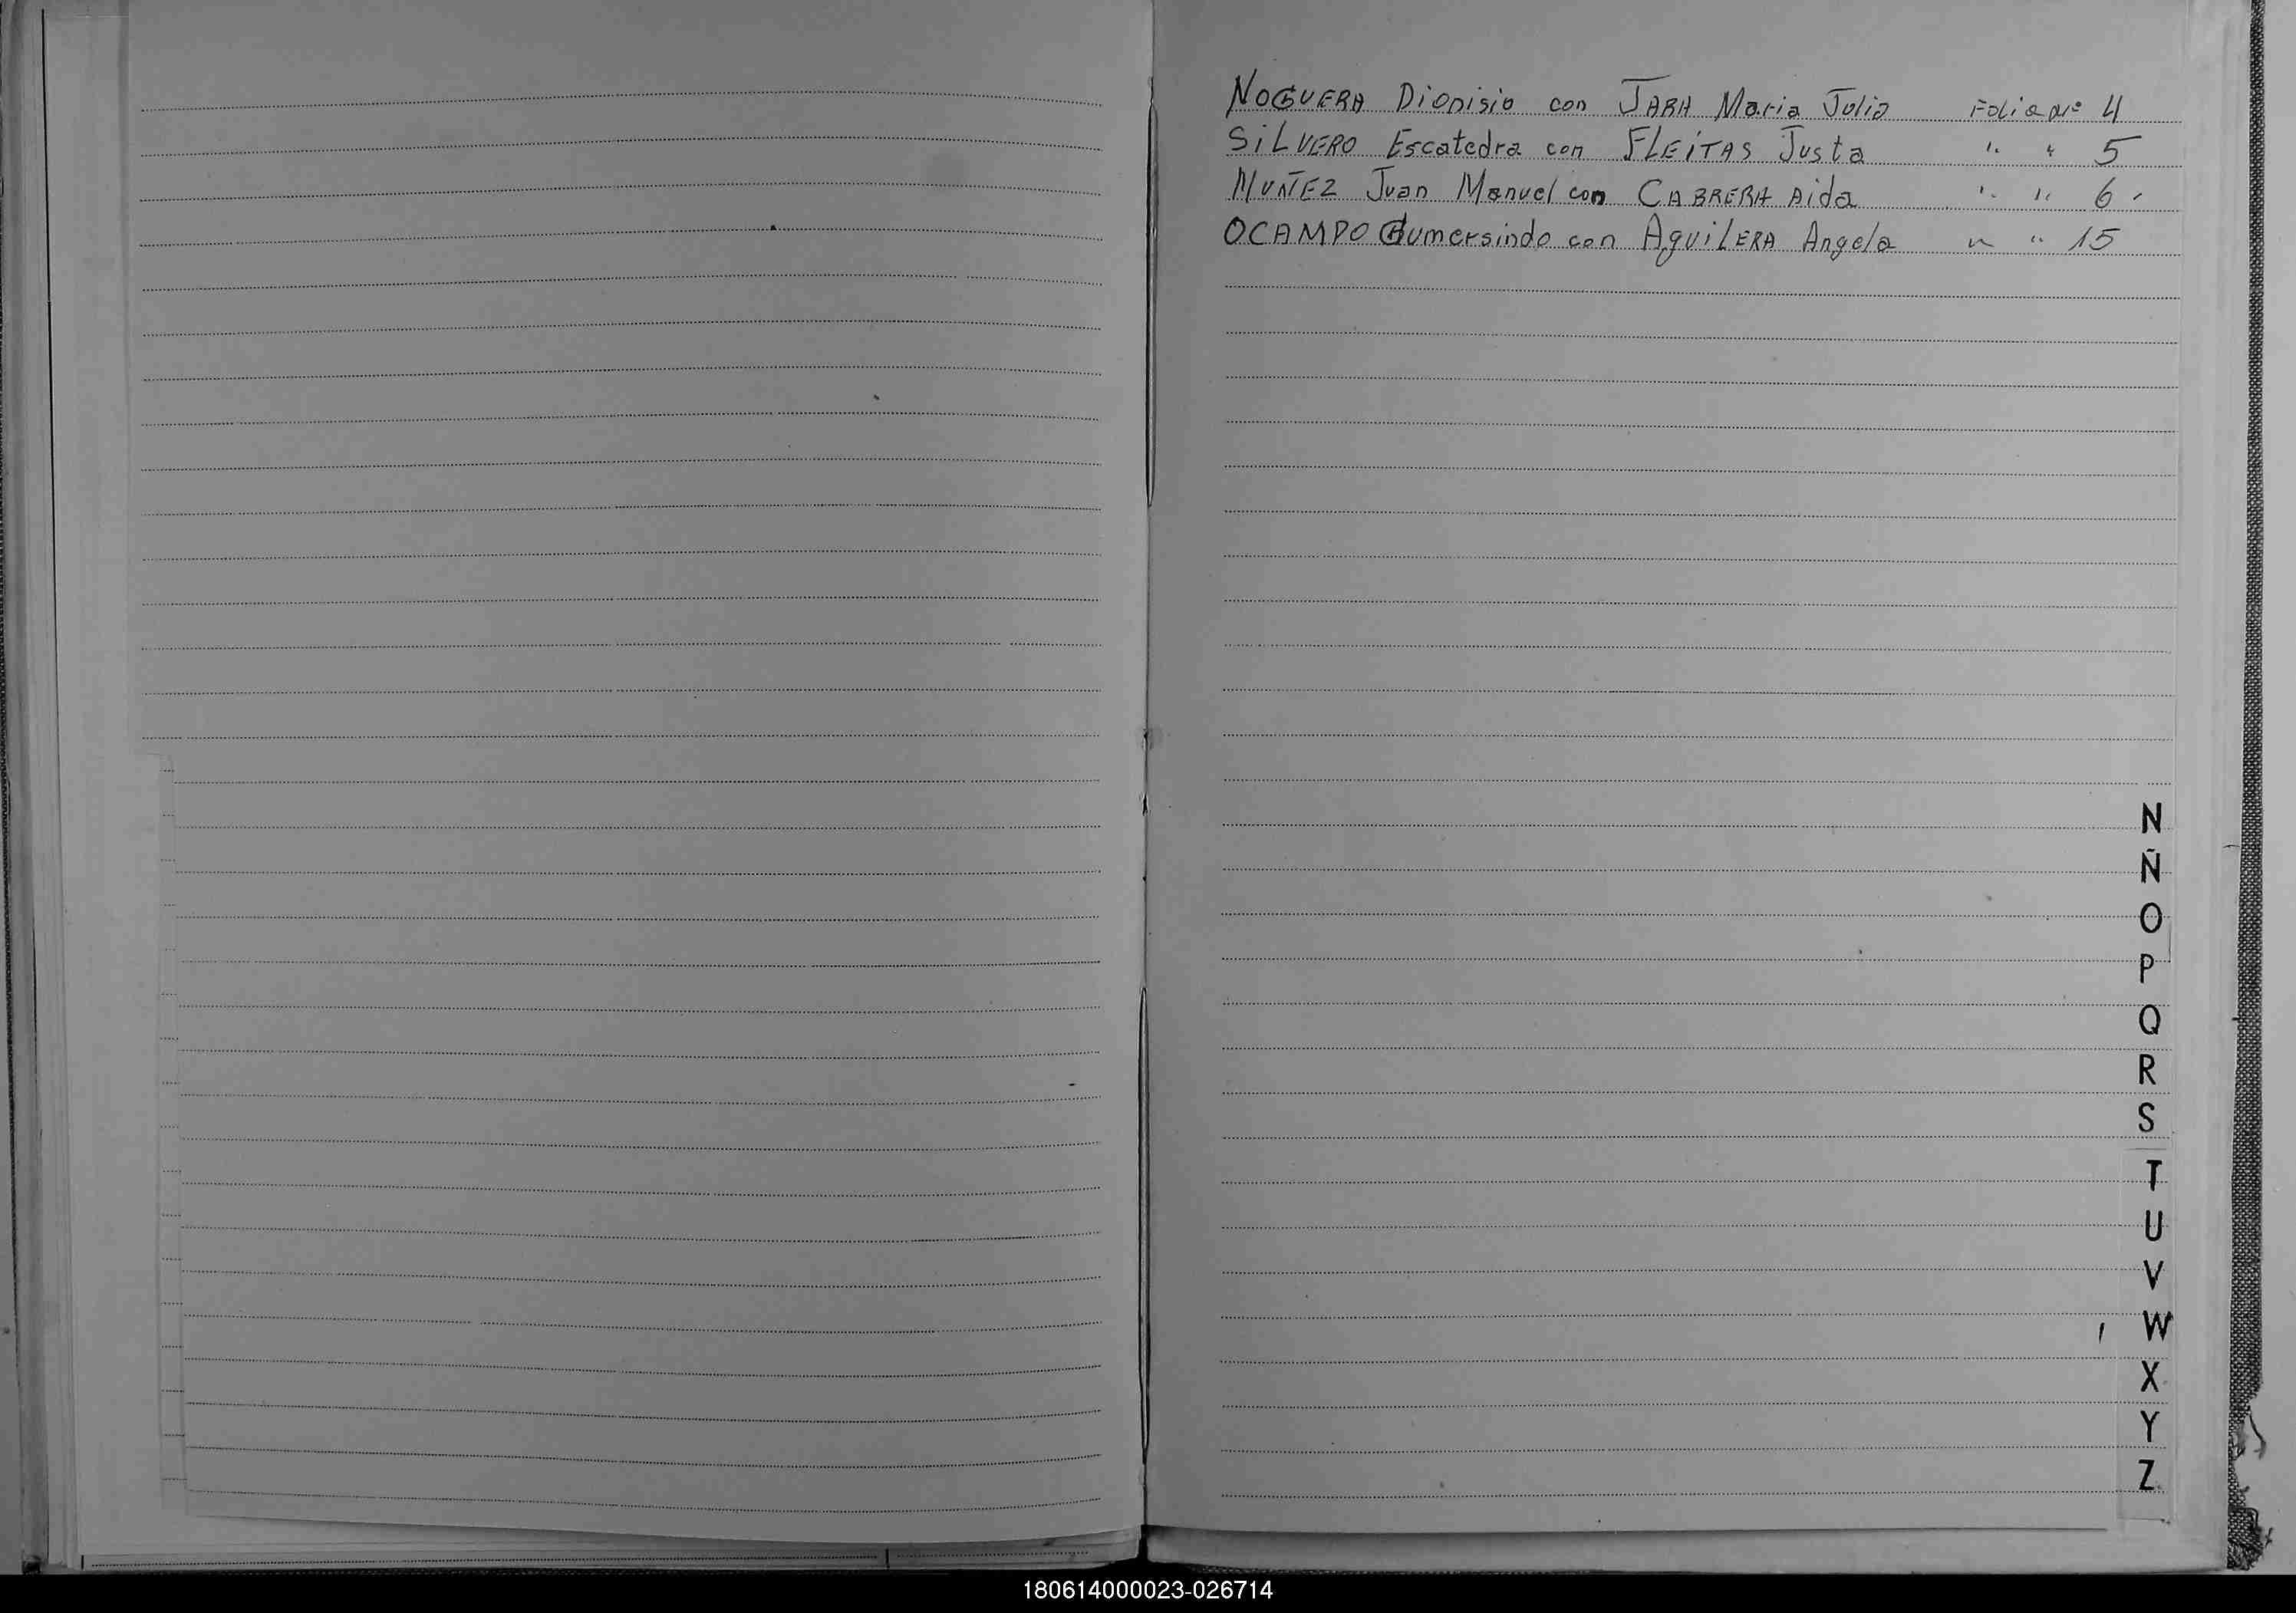 NOGUERA Dionisio con JARA Maria Julia Folio Nº 4
SILVERO Escatedra con FLEITAS Justa " " 5
NUÑEZ Juan Manuel con CABRERA Aida " " 6
OCAMPO Gumersindo con AguiLERA Angela " " 15
N
Ñ
O
P
Q
R
S
T
U
V
W
X
Y
Z
180614000023-026714